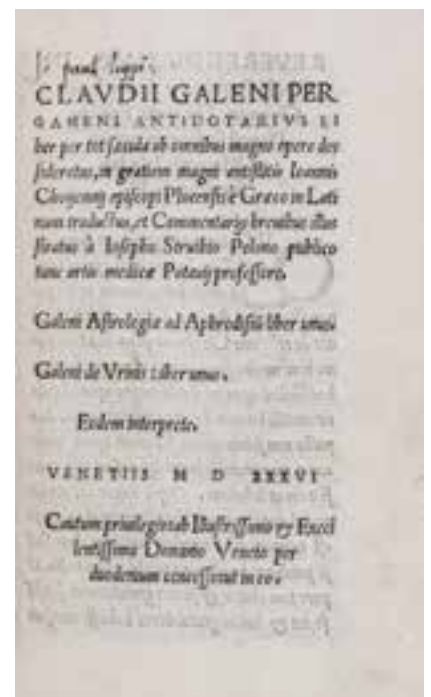 CLAVDII GALENI PER
GAMENI ANTIDOTARIVS LI
ber per tot sæcula ab omnibus magno opere de
sideratus, in gratiam magni antistitis Ioannis
episcopi Plocensis è Græco in Lati
num traductus, et Commentarijs breuibus illu
stratus à Iosepho Struthio Polono publico
artis medicæ Patauij professore.
Galeni Astrologia ad Aphrodisiū liber unus.
Galeni de Vrinis Liber unus.
Eodem interprete.
VENETIIS M D XXXVI
Cautum priuilegio ab Illustrissimo & Excel
lentissimo Veneto per
concesserat in eo.